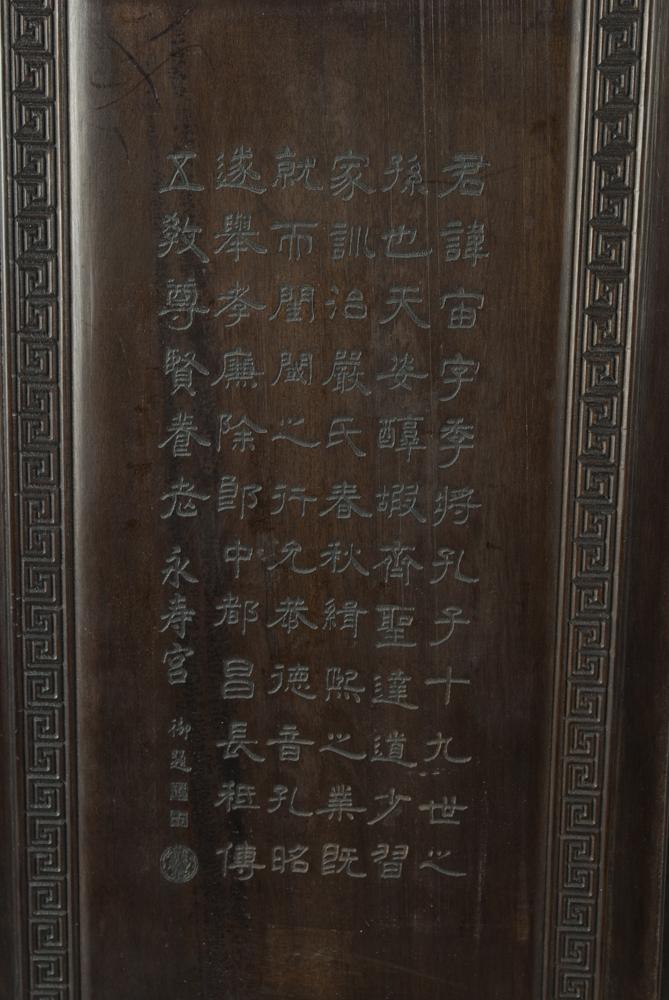 君諱宙字季將孔子十九世之
孫也天姿醇嘏齊聖達道少習
家訓治嚴氏春秋緝熙之業既
就而閨閾之行允恭德音孔昭
遂舉孝廉除郎中都昌長祗傳
五教尊賢養老 永寿宫 御題